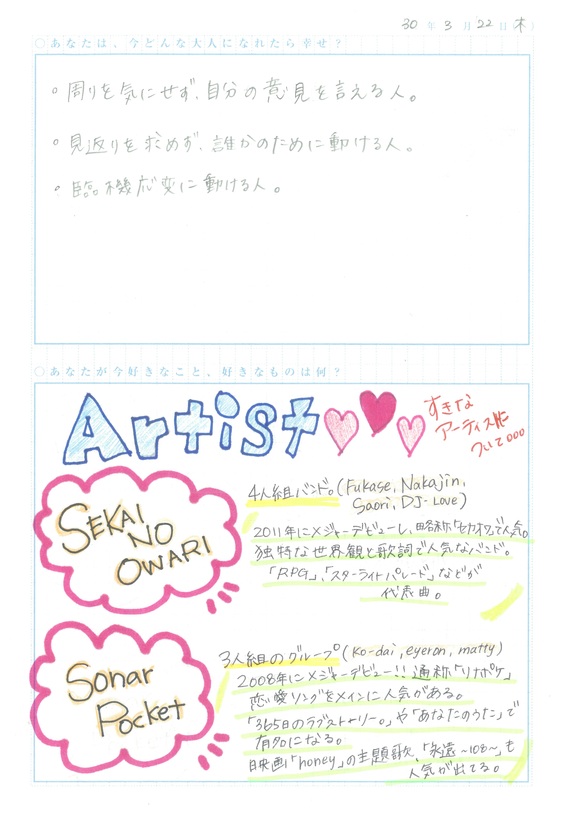 30 年 3 月 22 日 木
○あなたは、今どんな大人になれたら幸せ?
○周りを気にせず、自分の意見を言える人。
○見返りを求めず、誰かのために動ける人。
○臨機応変に動ける人。
○あなたが今好きなこと、好きなものは何?
Artist
すきな
アーティストに
ついて○○○
SEKAI
NO
OWARI
4人組バンド。(Fukase, Nakajin,
Saori, DJ-Love)
2011年にメジャーデビューし、略称「セカオワ」で人気。
独特な世界観と歌詞で人気なバンド。
「RPG」、「スターライトパレード」などが
代表曲。
Sonar
Pocket
3人組のグループ(ko-dai, eyeron, matty)
2008年にメジャーデビュー!!通称「ソナポケ」
恋愛ソングをメインに人気がある。
「365日のラブストーリー。」や「あなたのうた」で
有名になる。
映画「honey」の主題歌、「永遠~108~」も
人気が出てる。